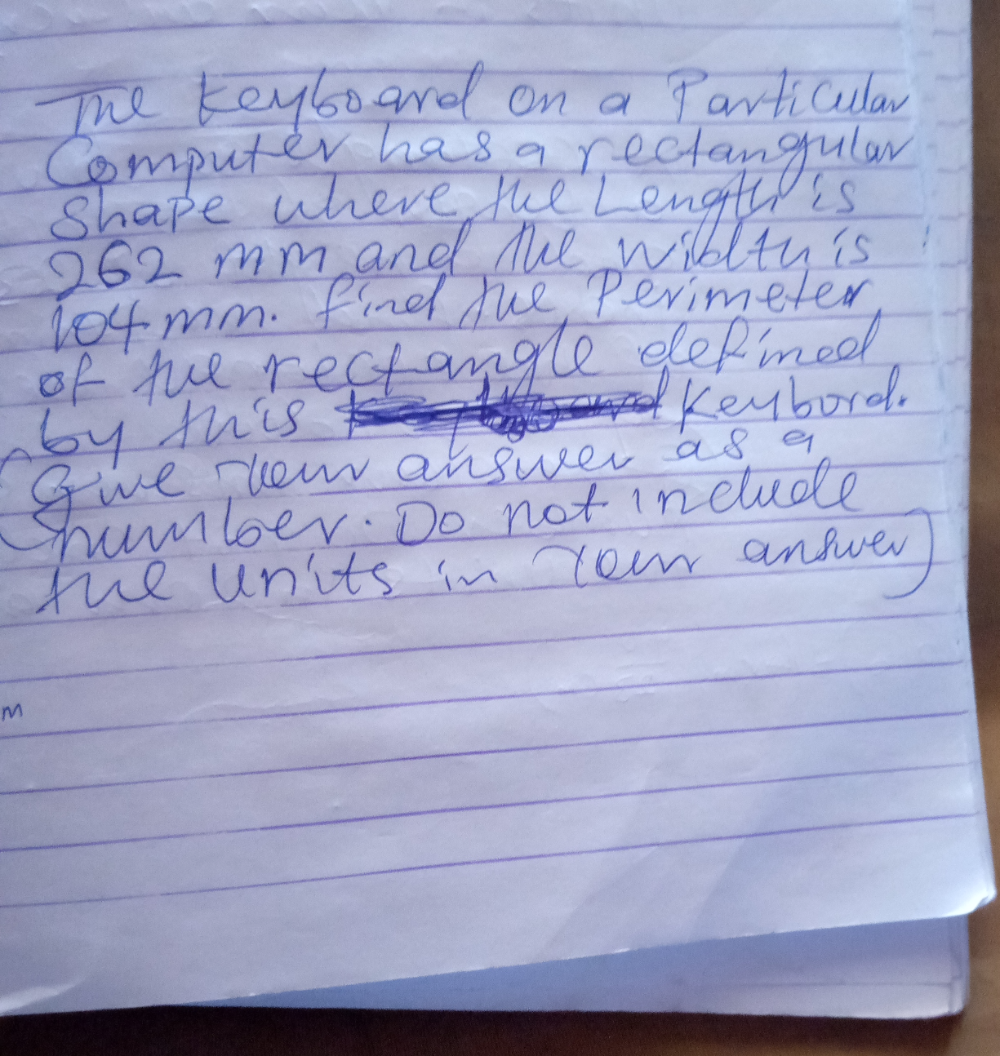 The keyboard on a Particular
Computer has a rectangular
Shape where the Length is
262 mm and the width is
104 mm. find the Perimeter
of the rectangle defined
by this Keybord.
(Give your answer as a
number. Do not include
the units in your answer)
m